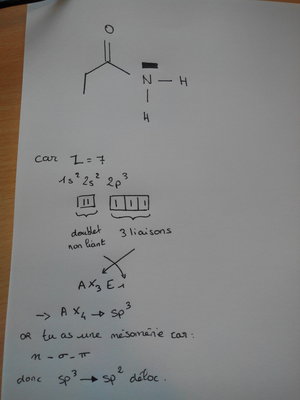 O
N — H
H
car Z = 7
1s² 2s² 2p³
doublet 3 liaisons
non liant
A X₃ E₁
→ A X₄ → sp³
OR tu as une mésomérie car :
n - σ - π
donc sp³ → sp² déloc.